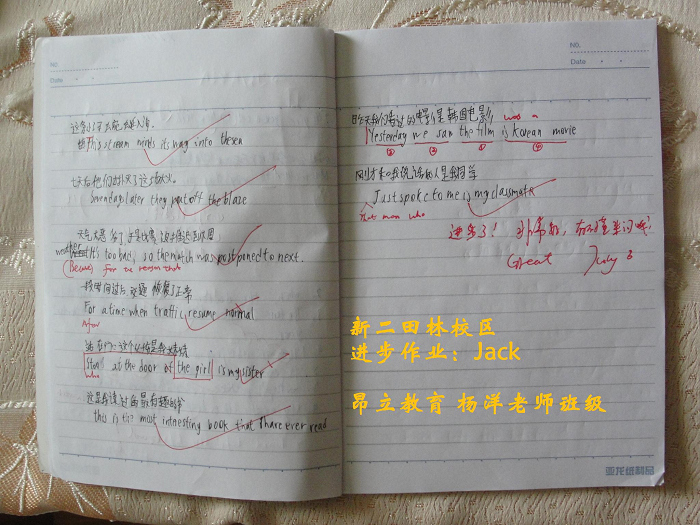 NO.
Date
这条小河
This stream winds its way into the sea
七天后他们扑灭了这场大火。
Seven days later they put off the blaze
It is too bad, so the match was postponed to next.
(Because) for the reason that
一段时间过后 交通 恢复了正常
For a time when traffic resume normal
After
站在门口这个女孩是我
Stand at the door of the girl is my sister
who
这是我读过的最有趣的书
this is the most interesting book that I have ever read
NO.
Date
昨天我们看过的电影是韩国电影
was a
Yesterday we san the film is Korean movie
① ② ③ ④
刚才和我说话的人是我同学
Just spoke to me is my classmate
that man who
进步了! 非常好,
Great July 8
新二田林校区
进步作业：Jack
昂立教育 杨洋老师班级
亚龙纸制品